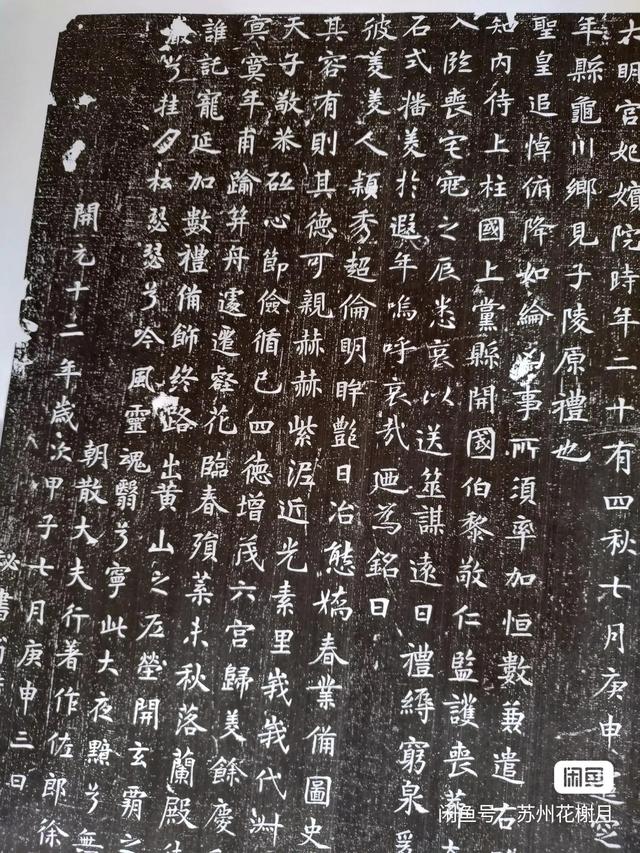 大明宫妃嬪院時年二十有四秋七月庚申
年縣龜川鄉見子陵原禮也
聖皇追悼俯降如綸事所須率加恒數兼遣右
知内侍上柱國上黨縣開國伯黎敬仁監護喪葬
入臨喪宅窀之辰悉哀以送筮謀遠日禮縟窮泉
石式播美於遐年嗚呼哀哉廼為銘曰
彼美美人穎秀超倫明眸艷日冶態嬌春業備圖史
其容有則其德可親赫赫紫渥近光素里峩峩代洲
天子敬茶砥心節儉循已四德增茂六宫歸美餘慶
寘寞年甫踰笄舟遽遷粲花臨春殞葉未秋落蘭殿
誰記寵延加數禮俻飾終路出黄山之石塋開玄霸之
兮挂夕松瑟瑟兮吟風靈魂翳兮寧此大夜黯兮無
朝散大夫行著作佐郎徐
開元十二年歲次甲子七月庚申三日
秘書
闲鱼
闲鱼号：苏州花榭月